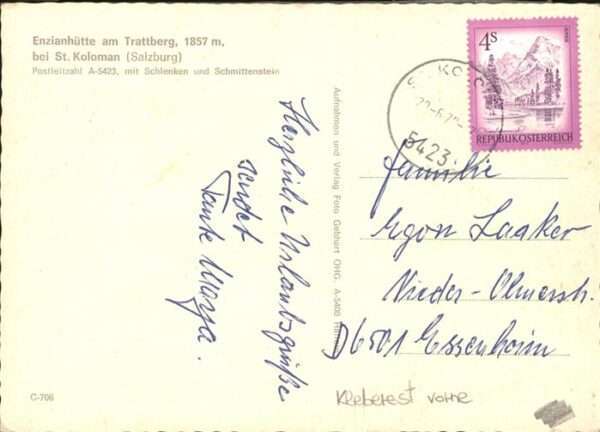 Enzianhütte am Trattberg, 1857 m,
bei St. Koloman (Salzburg)
Postleitzahl A-5423, mit Schlenken und Schmittenstein
Herzliche Urlaubsgrüße
sendet
Tante
Aufnahmen und Verlag Foto Gebhart OHG. A-5400
4s
REPUBLIK ÖSTERREICH
5423
Familie
Egon Laaker
Nieder-Olmerstr.
D6501 Essenheim
Kleberest vorne
C-706